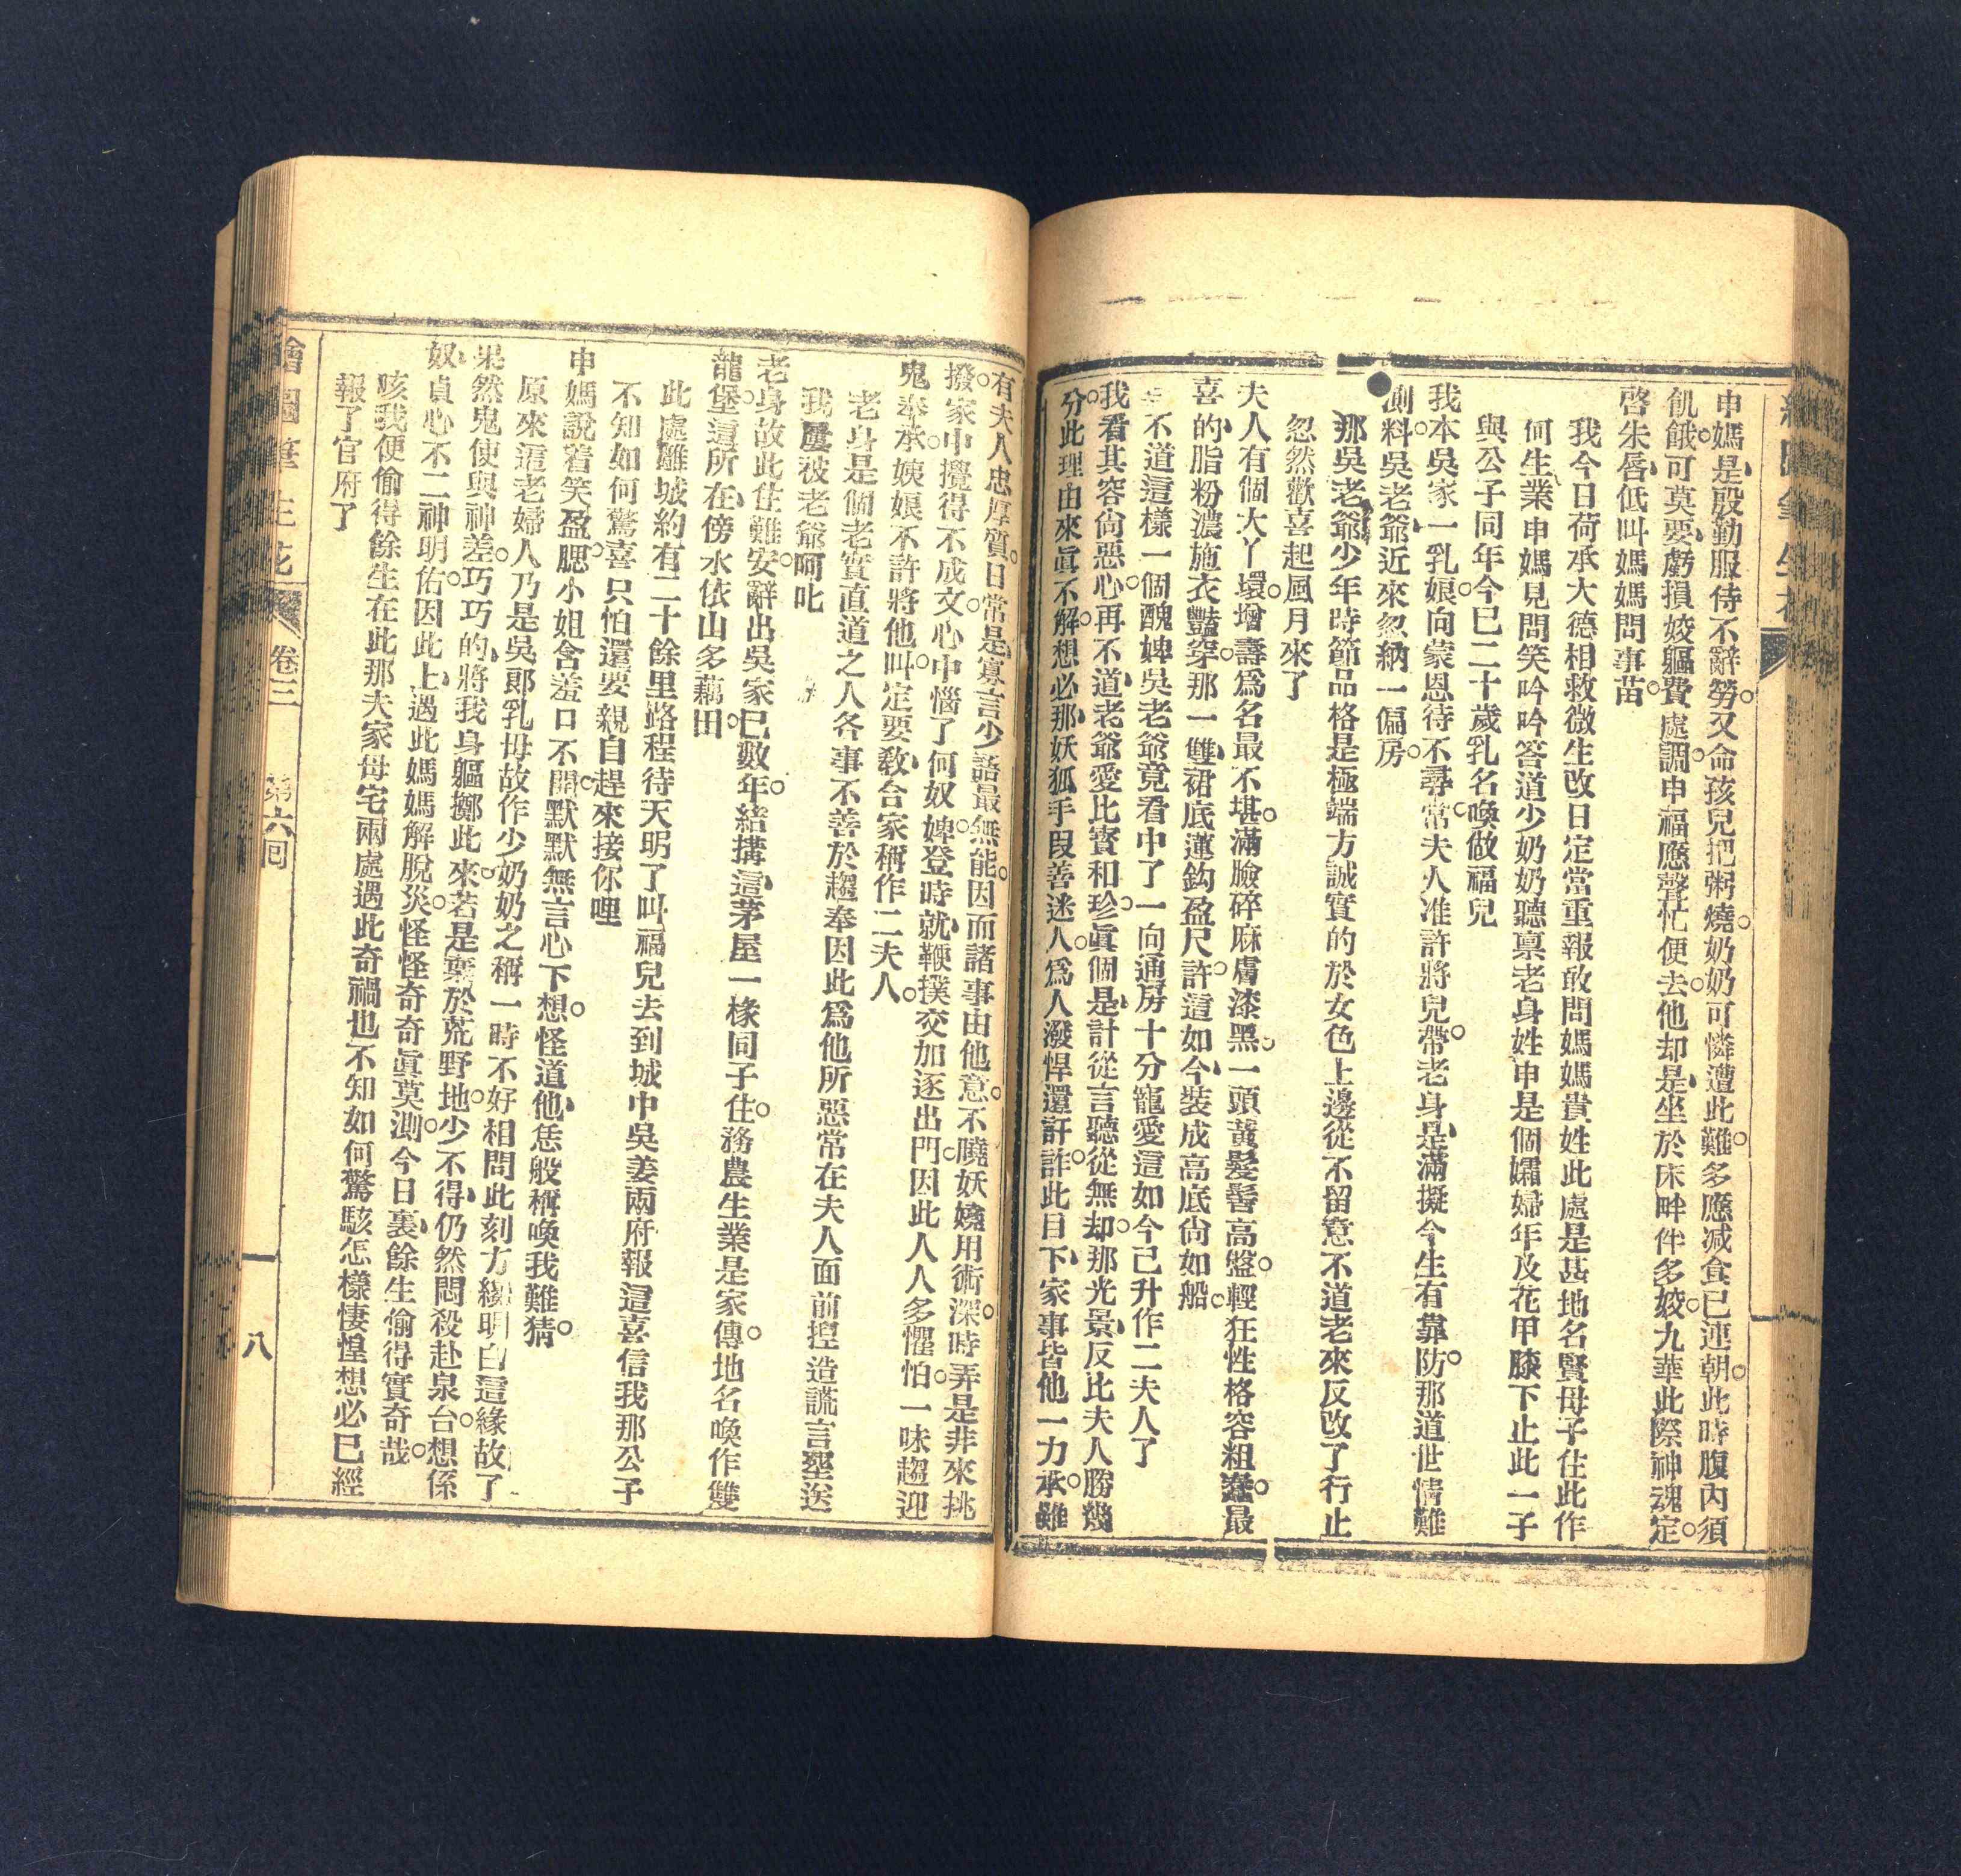 申媽是殷勤服侍不辭勞。又命孩兒把粥燒。奶奶可憐遭此難。多應減食已連朝。此時腹內須
飢餓。可莫要虧損姣軀費處調。申福應聲忙便去。他却是坐於床畔伴多姣。九華此際神魂定。
啓朱唇低叫媽媽問事苗。
我今日荷承大德相救微生改日定當重報敢問媽媽貴姓此處是甚地名賢母子住此作
何生業申媽見問笑吟吟答道少奶奶聽禀老身姓申是個孀婦年及花甲膝下止此一子
與公子同年今已二十歲乳名喚做福兒
我本吳家一乳娘。向蒙恩待不尋常。夫人准許將兒帶。老身是滿擬今生有靠防。那道世情難
測料。吳老爺近來忽納一偏房。
那吳老爺少年時節品格是極端方誠實的於女色上邊從不留意不道老來反改了行止
忽然歡喜起風月來了
夫人有個大丫環。增壽爲名最不堪。滿臉碎麻膚漆黑。一頭黃髮髻高盤。輕狂性格容粗蠢。最
喜的脂粉濃施衣豔穿。那一雙裙底蓮鈎盈尺許。這如今裝成高底尙如船。
不道這樣一個醜婢吳老爺竟看中了一向通房十分寵愛這如今已升作二夫人了
我看其容尙惡心。再不道老爺愛比寶和珍。眞個是計從言聽從無却。那光景反比夫人勝幾
分。此理由來眞不解。想必那妖狐手段善迷人。爲人潑悍還訐詐。此目下家事皆他一力承。雖
有夫人忠厚質。日常是寡言少語最無能。因而諸事由他意。不曉妖嬈用術深。時弄是非來挑
撥。家中攪得不成文。心中惱了何奴婢。登時就鞭撲交加逐出門。因此人人多懼怕。一味趨迎
鬼奉承。姨娘不許將他叫。定要敎合家稱作二夫人。
老身是個老實直道之人各事不善於趨奉因此爲他所惡常在夫人面前揑造謊言壅送
我屢被老爺呵叱
老身故此住難安。辭出吳家已數年。結搆這茅屋一椽同子住。務農生業是家傳。地名喚作雙
龍堡。這所在傍水依山多藕田。
此處離城約有二十餘里路程待天明了叫福兒去到城中吳姜兩府報這喜信我那公子
不知如何驚喜只怕還要親自趕來接你哩
申媽說着笑盈腮。小姐含羞口不開。默默無言心下想。怪道他恁般稱喚我難猜。
原來這老婦人乃是吳郞乳母故作少奶奶之稱一時不好相問此刻方纔明白這緣故了
果然鬼使與神差。巧巧的將我身軀擲此來。若是棄於荒野地。少不得仍然悶殺赴泉台。想係
奴貞心不二神明佑。因此上遇此媽媽解脫災。怪怪奇奇眞莫測。今日裏餘生偷得實奇哉。
咳我便偷得餘生在此那夫家母宅兩處遇此奇禍也不知如何驚駭怎樣悽惶想必已經
報了官府了
繪圖筆生花 卷三 第六回 八